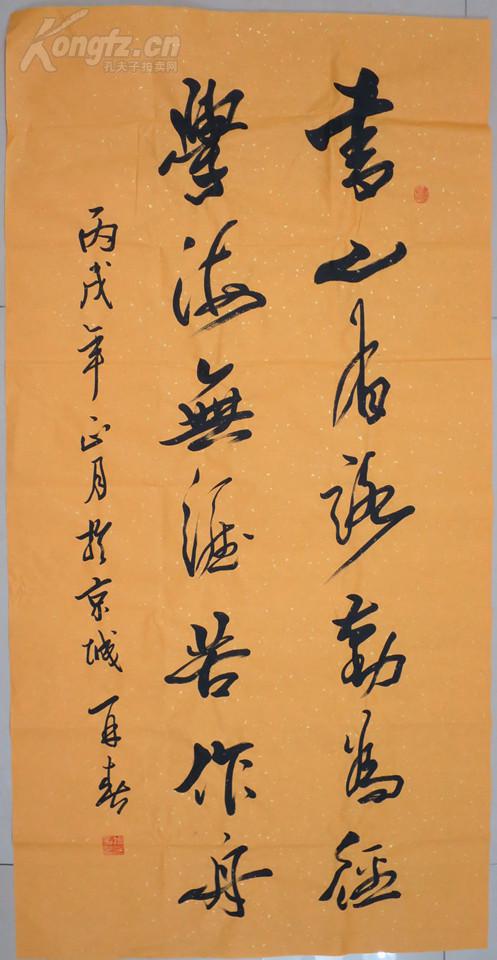 書山有路勤為徑
學海無涯苦作舟
丙戌年正月於京城 再春
Kongfz.cn
孔夫子拍卖网